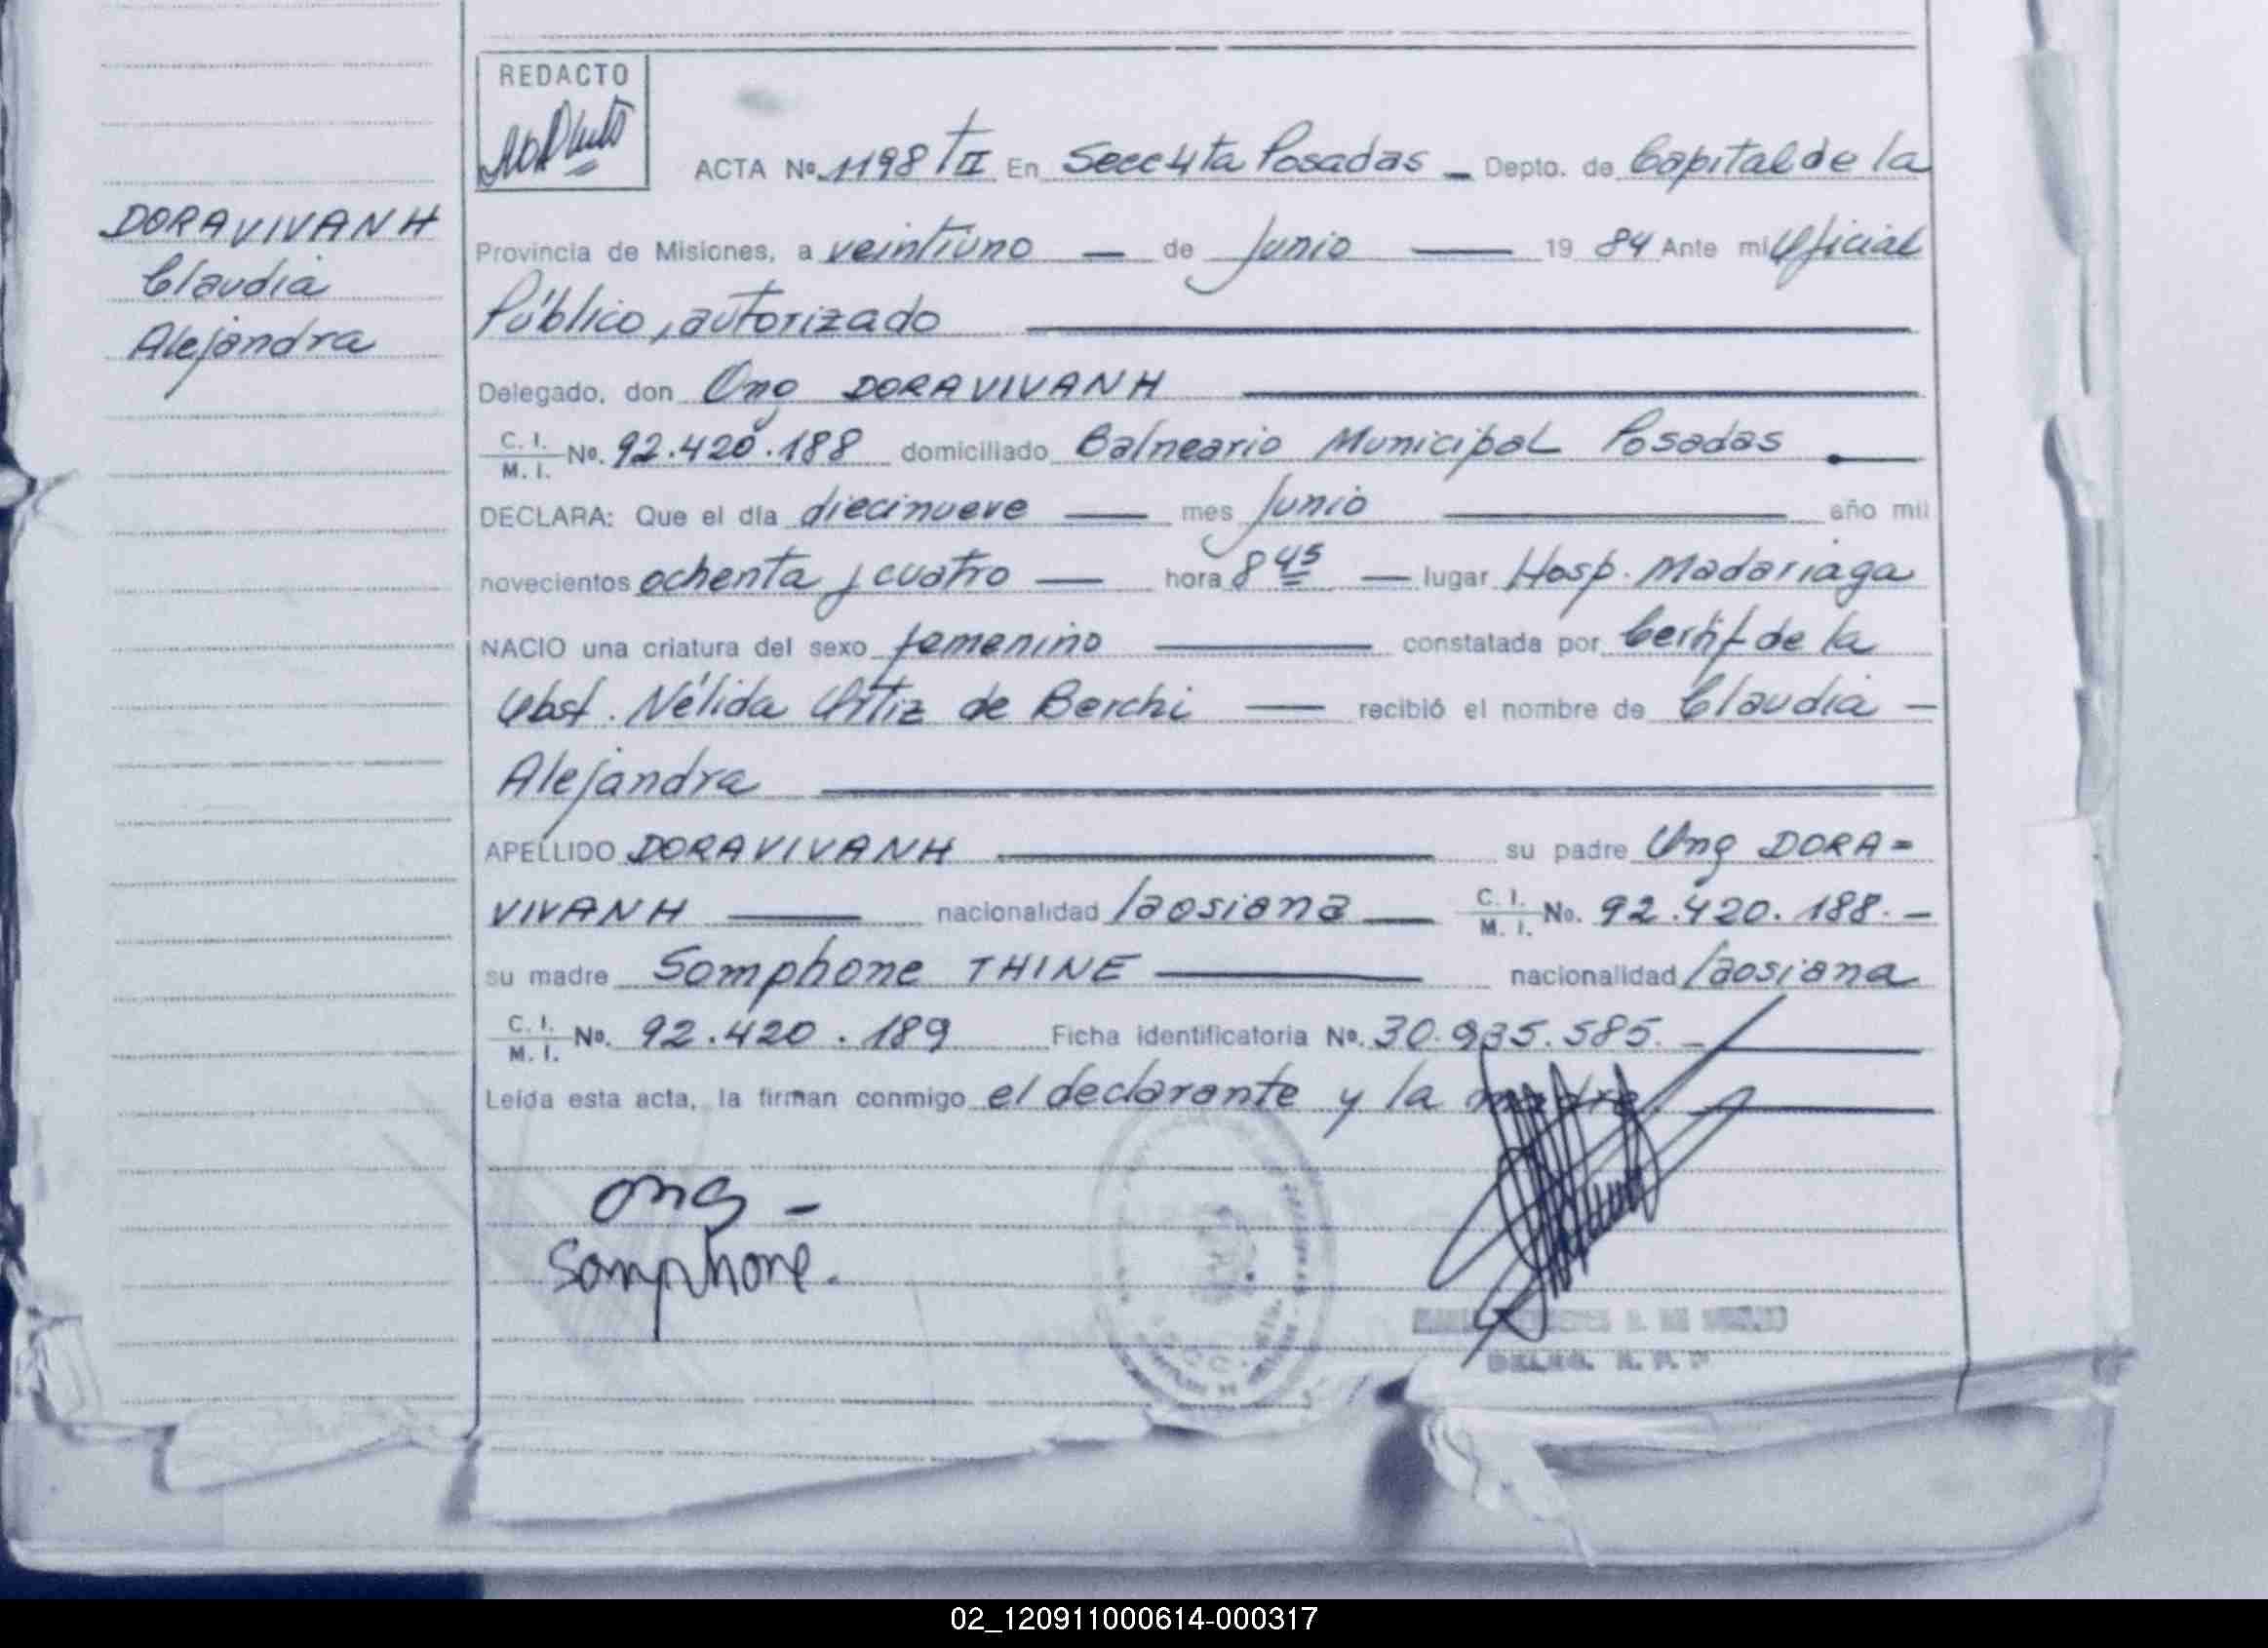 REDACTO
ACTA Nº 1198 TII En Secc 4ta Posadas - Depto. de Capital de la
DORAVIVANH
Claudia
Alejandra
Provincia de Misiones, a veintiuno — de Junio — 19 84 Ante mi Oficial
Público, autorizado
Delegado, don Ong DORAVIVANH
C. I. / M. I. Nº. 92.420.188 domiciliado Balneario Municipal Posadas
DECLARA: Que el día diecinueve — mes Junio — año mil
novecientos ochenta y cuatro — hora 8 45 — lugar Hosp. Madariaga
NACIO una criatura del sexo femenino — constatada por Certif de la
Obst. Nélida Ortiz de Berchi — recibió el nombre de Claudia —
Alejandra
APELLIDO DORAVIVANH — su padre Ong DORA=
VIVANH — nacionalidad laosiana — C. I. / M. I. No. 92.420.188. —
su madre Somphone THINE — nacionalidad laosiana
C. I. / M. I. No. 92.420.189 Ficha identificatoria Nº. 30.935.585. —
Leída esta acta, la firman conmigo el declarante y la madre. —
Ong -
Somphone.
DELEG. R. P. P
02_120911000614-000317